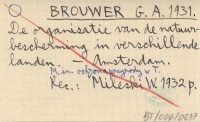 BROUWER G. A. 1931.
De organisatie van de natuur-
bescherming in verschillende
landen. — Amsterdam.
M. in. ochrona przyrody w T.
Rec.: Mileski W. 1932 p.
BT/006/0637